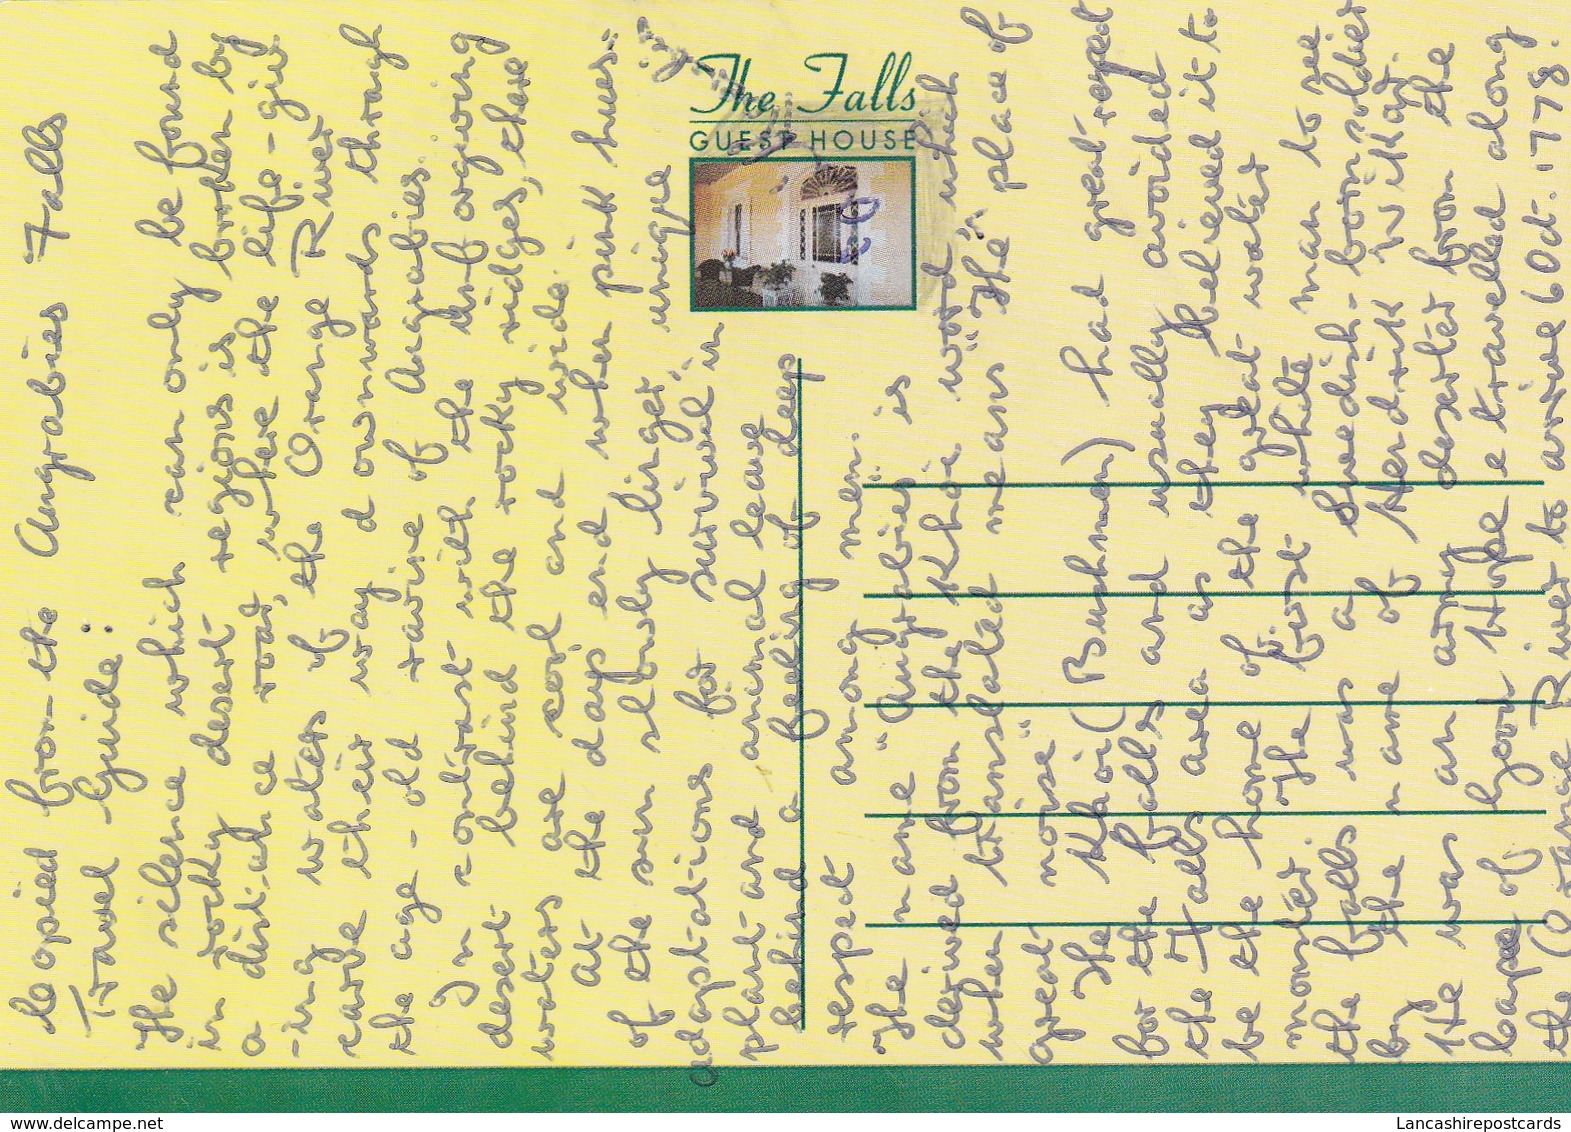 Copied from the Augrabies Falls
Travel Guide:
The silence which can only be found
in rocky desert regions is broken by
a distinct road, where the life-giv
-ing waters of the Orange River
carve their way downwards through
the age-old ravine of Augrabies.
In contrast with the unforgiving
desert behind the rocky ridges, these
waters are cool and wide.
At the days end when pink hues
of the sun slowly linger, unique
adaptations for survival in
plant and animal leave
behind a feeling of deep
respect among men.
The name "Augrabies" is
derived from the Khoi word, which
when translated means "The place of
great noise"
The Khoi (Bushmen) had great respect
for the falls and usually avoided
the Falls area as they believed it to
be the home of the great water
monster. The first white man to see
the falls was a Swedish-born soldier
by the name of Hendrik Wikkar.
He was an army deserter from the
Cape of Good Hope & travelled along
the Orange River to arrive 6 Oct. 1778.
The Falls
GUEST HOUSE
delcampe.net
Lancashirepostcards